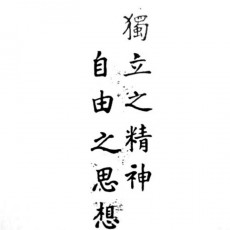 獨立之精神
自由之思想